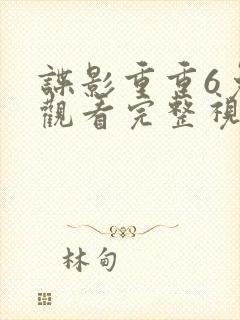 諜影重重6
觀看完整視
林甸